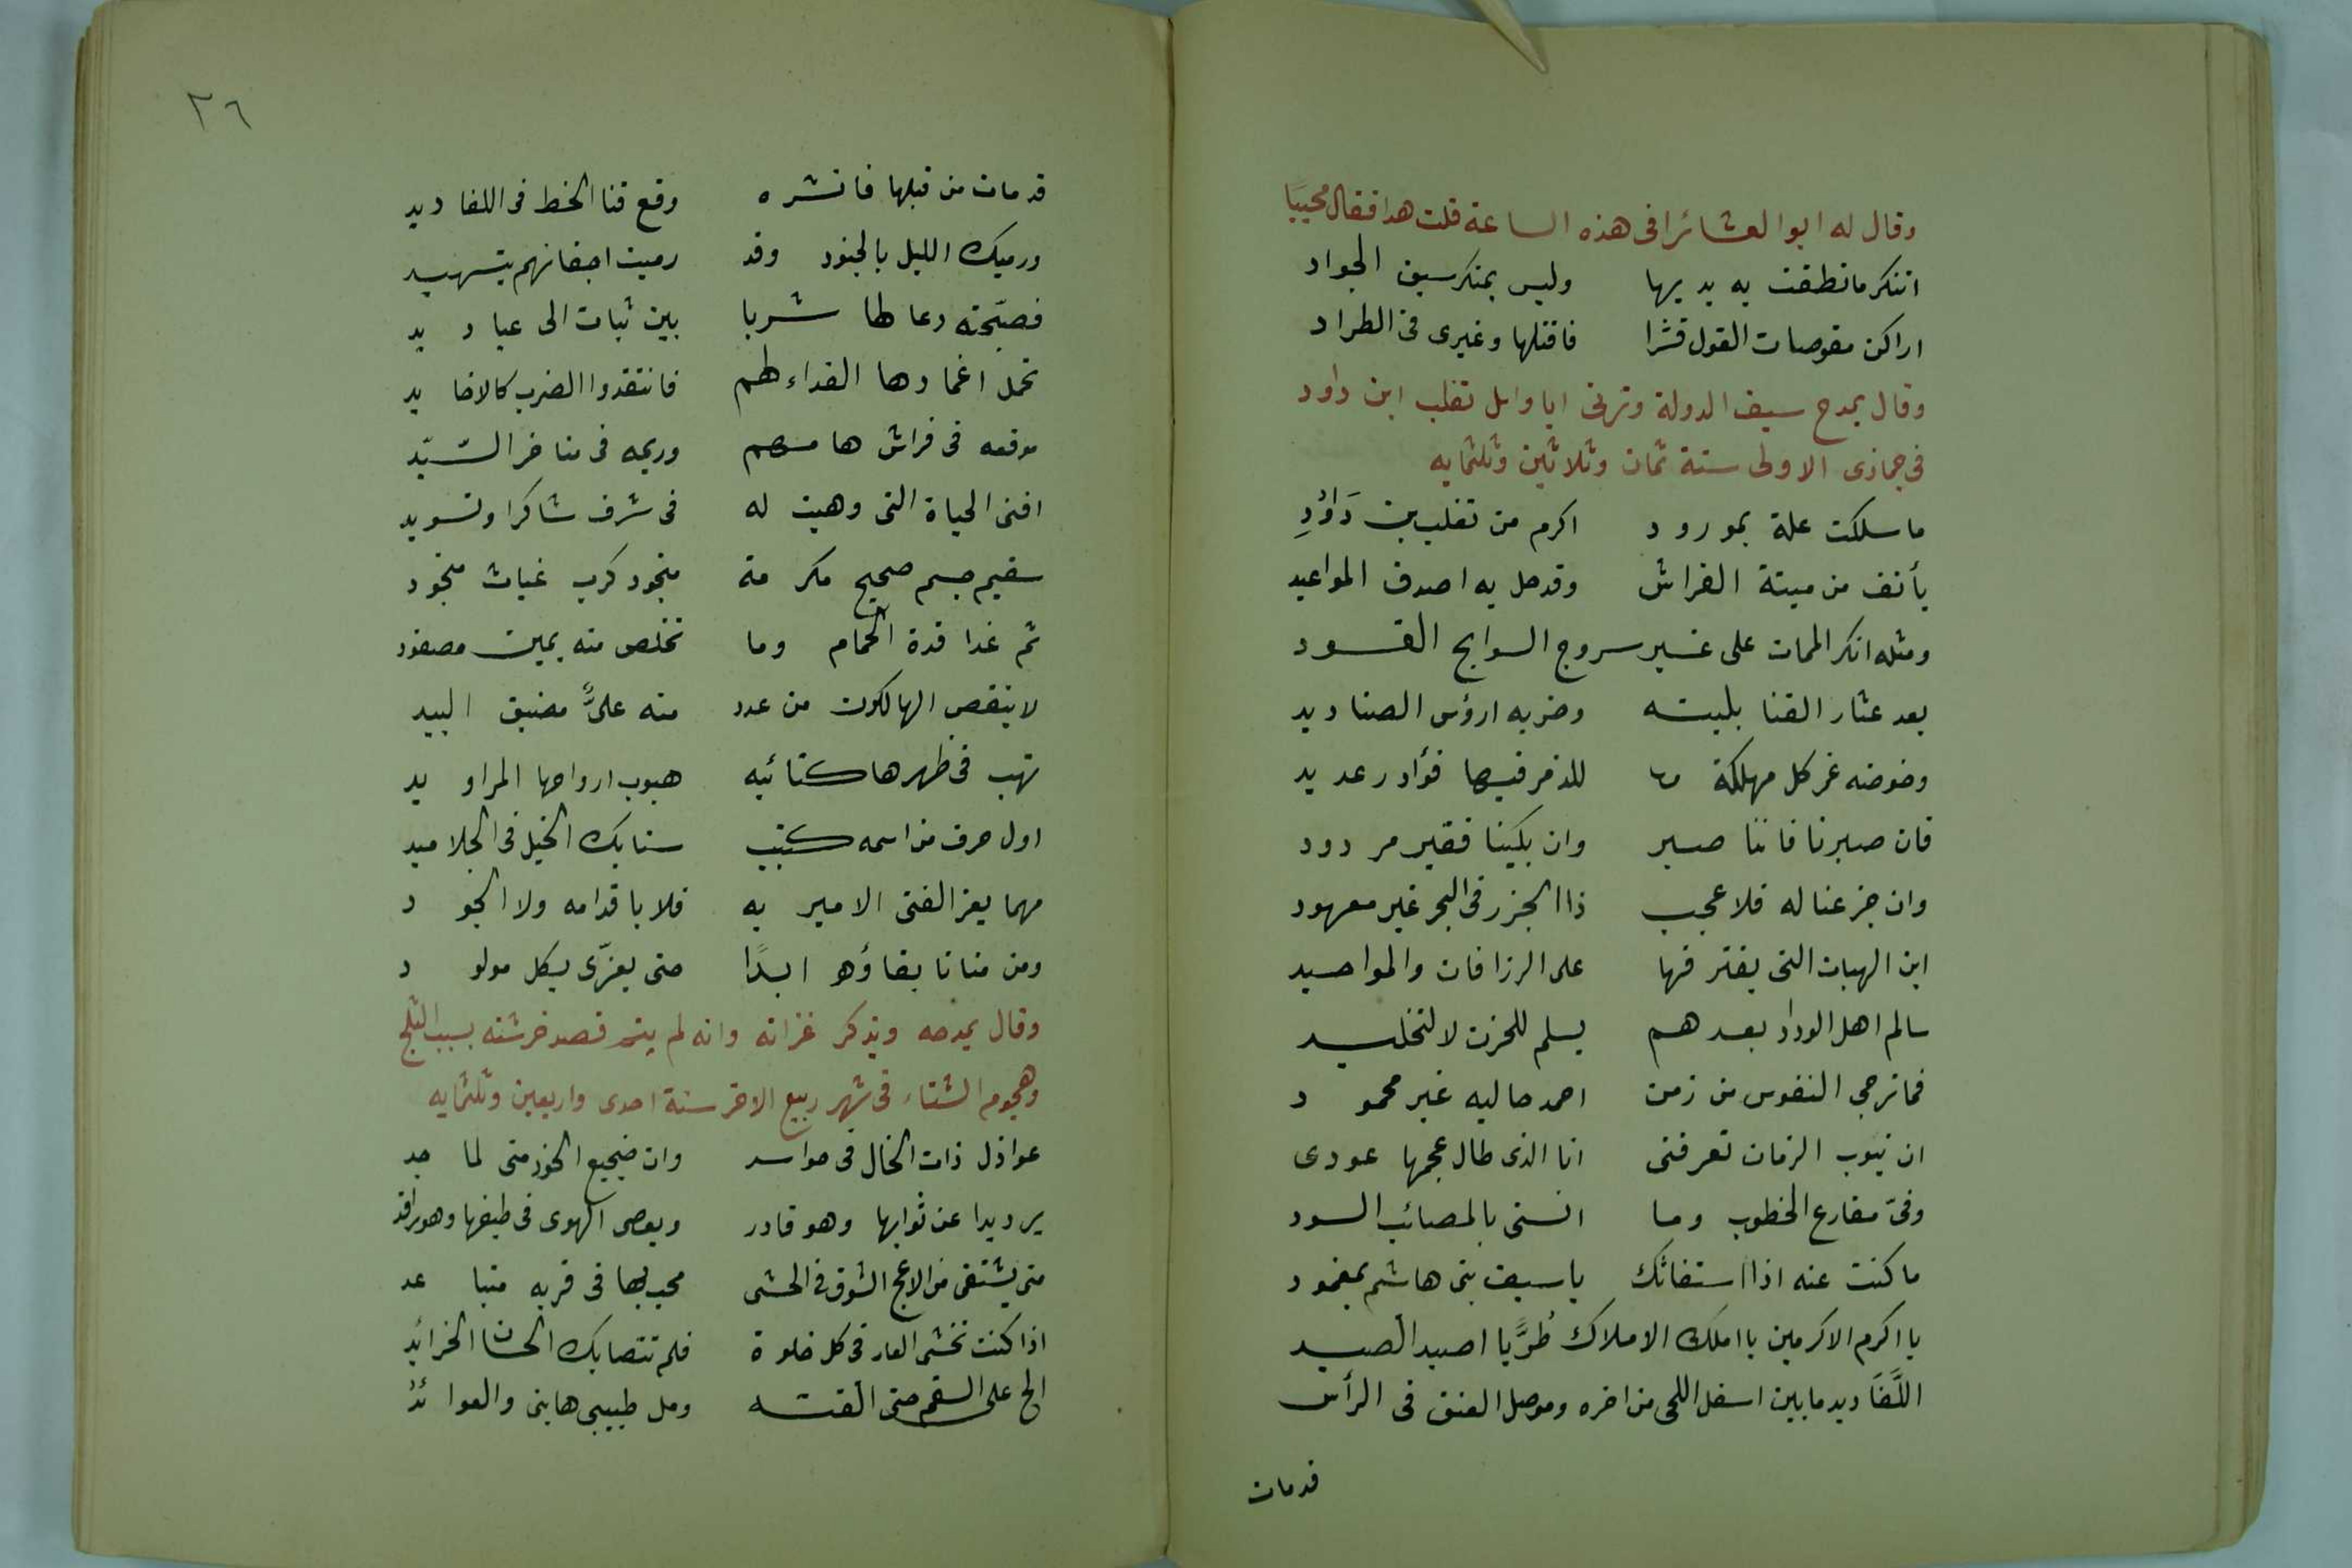 وقال له ابوالعشائر افى هذه الساعة قلت هدا فقال مجيبًا
اتنكر ما نطقت به بديها وليس بمنكر سبق الجواد
اراكن مقوصات القول قشرا فاقتلها وغيرى فى الطراد
وقال يمدح سيف الدولة وترثى ابا وايل تغلب ابن داود
فى جمادى الاولى سنة ثمان وثلاثين وثلثمايه
ما سلكت علة بمورود اكرم من تغلب بن دَاوُدِ
يأنف من ميتة الفراش وقد حل به اصدق المواعيد
ومثله انكر الممات على غير سروج السوابح القود
بعد عثار القنا بلبته وضربه ارؤس الصناديد
وخوضه غمر كل مهلكة للذمر فيها فؤاد رعديد
فان صبرنا فاننا صبر وان بكينا فغير مردود
وان جزعنا له فلا عجب ذا الجزر فى البحر غير معهود
اين الهبات التى يفترقها على الزرافات والمواحيد
سالم اهل الوداد بعدهم يسلم للحزن لا لتخليد
فما ترجى النفوس من زمن احمد حاليه غير محمود
ان نيوب الزمان تعرفنى انا الذى طال عجمها عودى
وفىّ مقارع الخطوب وما انسنى بالمصائب السود
ما كنت عنه اذا استغاثك يا سيف بنى هاشم بمغمود
يا اكرم الاكرمين يا املك الاملاك طُرًّا يا اصيد الصيد
اللَّغَاديد ما بين اسفل اللحى من اخره وموصل العنق فى الرأس
قدمات
٢٦
قد مات من قبلها فانشره وقع قنا الخط فى اللغاديد
ورميك الليل بالجنود وقد رميت اجفانهم بتسهيد
فصبّحته رعالها شربا بين ثبات الى عباديد
تحمل اغمادها الفداء لهم فانتقدوا الضرب كالاخاديد
موقعه فى فراش هامهم وريحه فى مناخر السّيد
افنى الحياة التى وهبت له فى شرف شاكرا وتسويد
سقيم جسم صحيح مكرمة منجود كرب غياث منجود
ثم غدا قدة الحمام وما تخلص منه يمين مصفود
لا ينقص الهالكون من عدد منه علىٌّ مضيق البيد
تهب فى ظهرها كتائبه هبوب ارواحها المراويد
اول حرف من اسمه كتبت سنابك الخيل فى الجلاميد
مهما يعز الفتى الامير به فلا باقدامه ولا الجود
ومن منانا بقاؤه ابدًا حتى يعزّى بكل مولود
وقال يمدحه ويذكر غزاته وانه لم يتم قصد خرشنه بسبب الثلج
وهجوم الشتاء فى شهر ربيع الاخر سنة احدى واربعين وثلثمايه
عواذل ذات الخال فى حواسد وان ضجيع الخود منى لماجد
يرد يدا عن ثوابها وهو قادر ويعصى الهوى فى طيفها وهو راقد
متى يشتفى من لاعج الشوق فى الحشى محب لها فى قربه متباعد
اذا كنت تخشى العار فى كل خلوة فلم تتصابك الحسان الخرائد
الح على السقم حتى الفته ومل طبيبى جانبى والعوائدُ